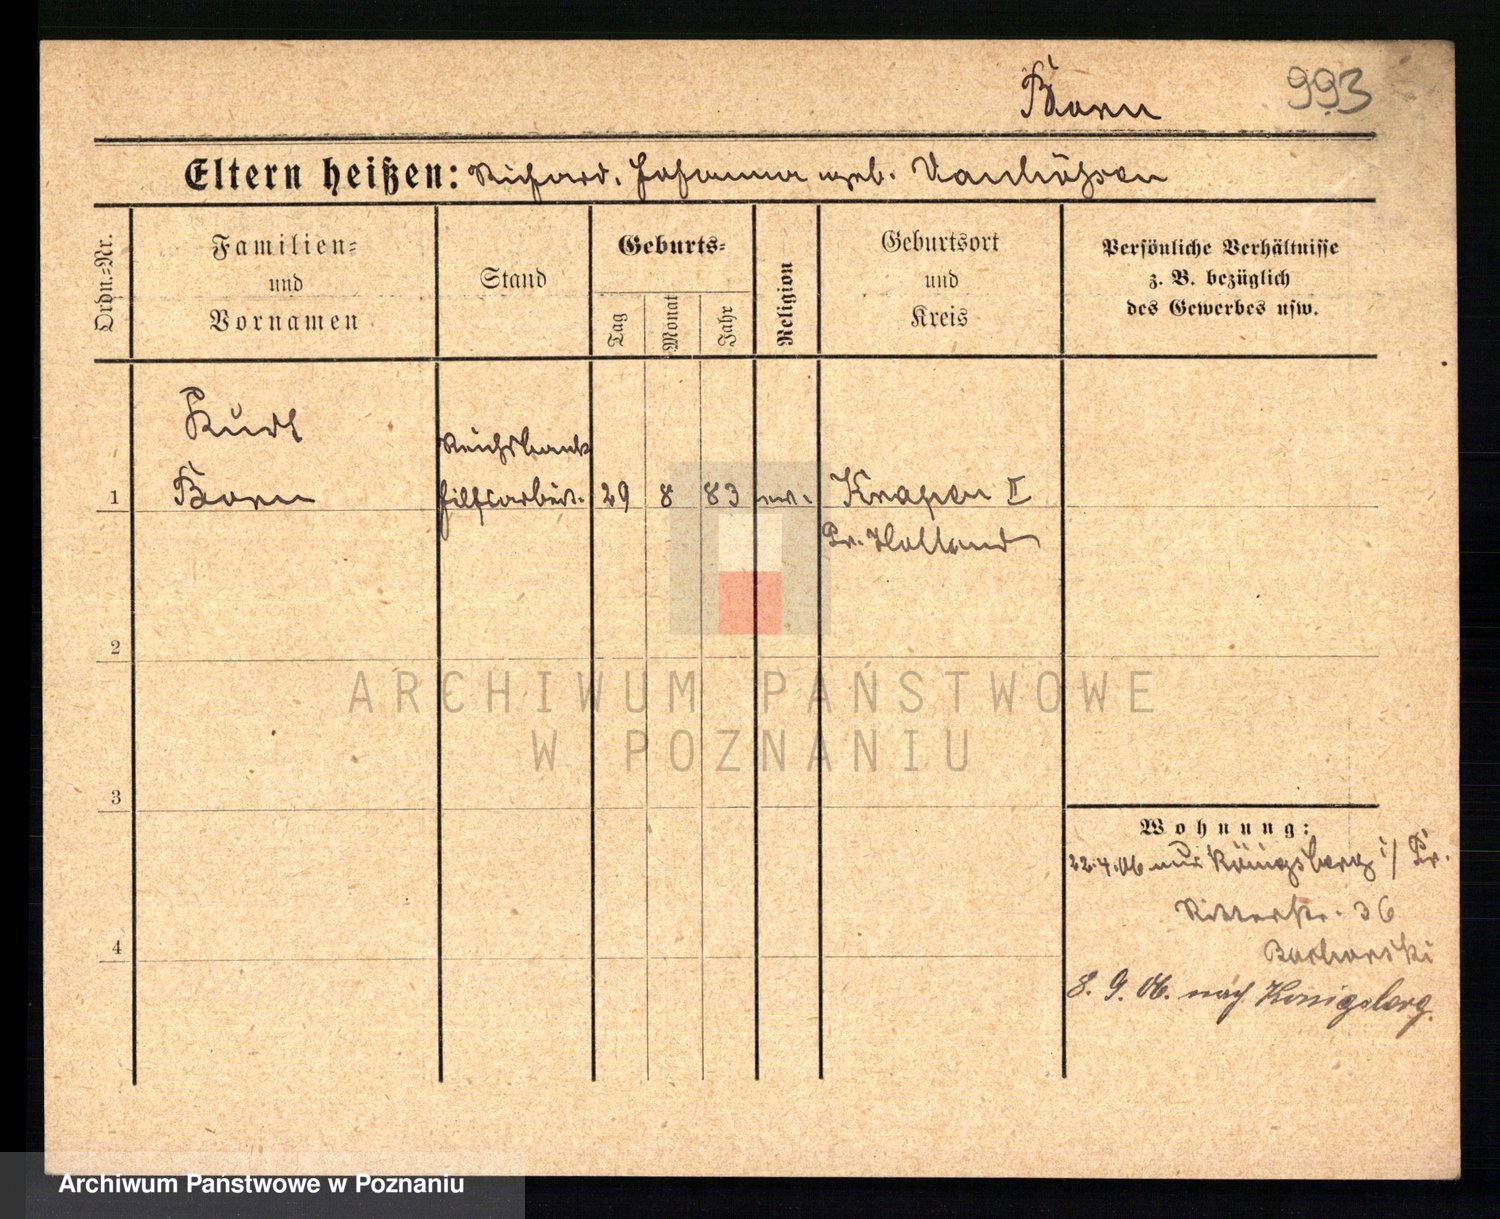 Born 993
Eltern heißen: Richard, Johanna geb. Vanhöfen
Ordn.=Nr.
Familien=
und
Vornamen
Stand
Geburts=
Tag
Monat
Jahr
Religion
Geburtsort
und
Kreis
Persönliche Verhältnisse
z. B. bezüglich
des Gewerbes usw.
Kurt
Reichsbank
1 Born hilfsarbeit. 29 8 83 ev. Krapen II
Pr. Holland
2
ARCHIWUM PAŃSTWOWE
W POZNANIU
3
Wohnung:
22.4.06 aus Königsberg i/ Pr.
Ritterstr. 36
4
8. 9. 06. nach Königsberg.
Archiwum Państwowe w Poznaniu